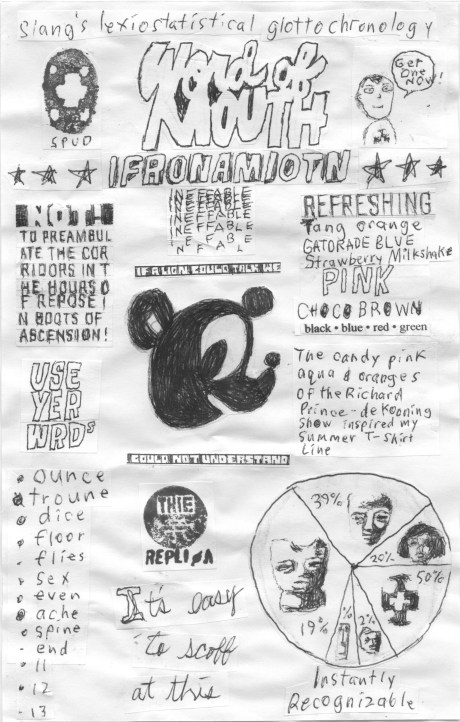 Slang's lexiostatistical glottochronology
SPUD
Word of
MOUTH
Get
One
NOW!
IFRONAMIOTN
INEFFABLE
INEFFABLE
INEFFABLE
INEFFABLE
NOTH
TO PREAMBUL
ATE THE COR
RIDORS IN T
HE HOURS O
F REPOSE I
N BOOTS OF
ASCENSION!
REFRESHING
Tang orange
GATORADE BLUE
Strawberry Milkshake
PINK
CHOCO BROWN
black • blue • red • green
IF A LION COULD TALK WE
COULD NOT UNDERSTAND
The candy pink
aqua & oranges
of the Richard
Prince-deKooning
show inspired my
Summer T-Shirt
Line
USE
YER
WRDS
ounce
troune
dice
floor
flies
sex
even
ache
spine
end
11
12
13
THIE
REPLIA
It's easy
to scoff
at this
39%
20%
50%
2%
%
19%
Instantly
Recognizable